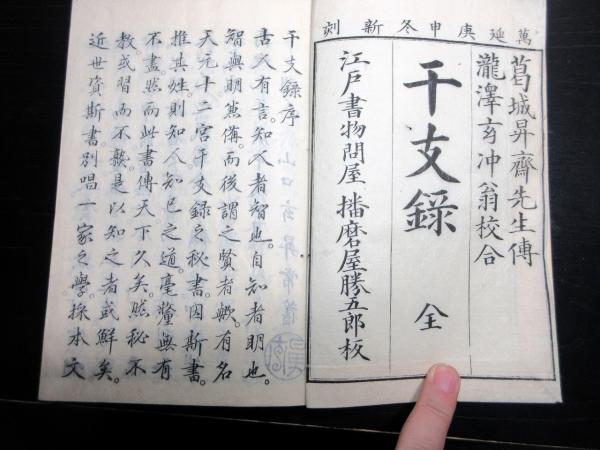 萬延庚申冬新刻
葛城昇齋先生傳
瀧澤玄冲翁校合
干支錄 全
江戸書物問屋 播磨屋勝五郎板
干支錄序
古人有言。知人者智也。自知者明也。
智與明兼備。而後謂之賢者歟。有名
天元十二宮干支錄之秘書。因斯書。
推其姓則知人知已之道。毫釐無有
不盡。然而此書傳天下久矣。然秘不
教。或習而不熟。是以知之者或鮮矣。
近世資斯書。別唱一家之學。採本文